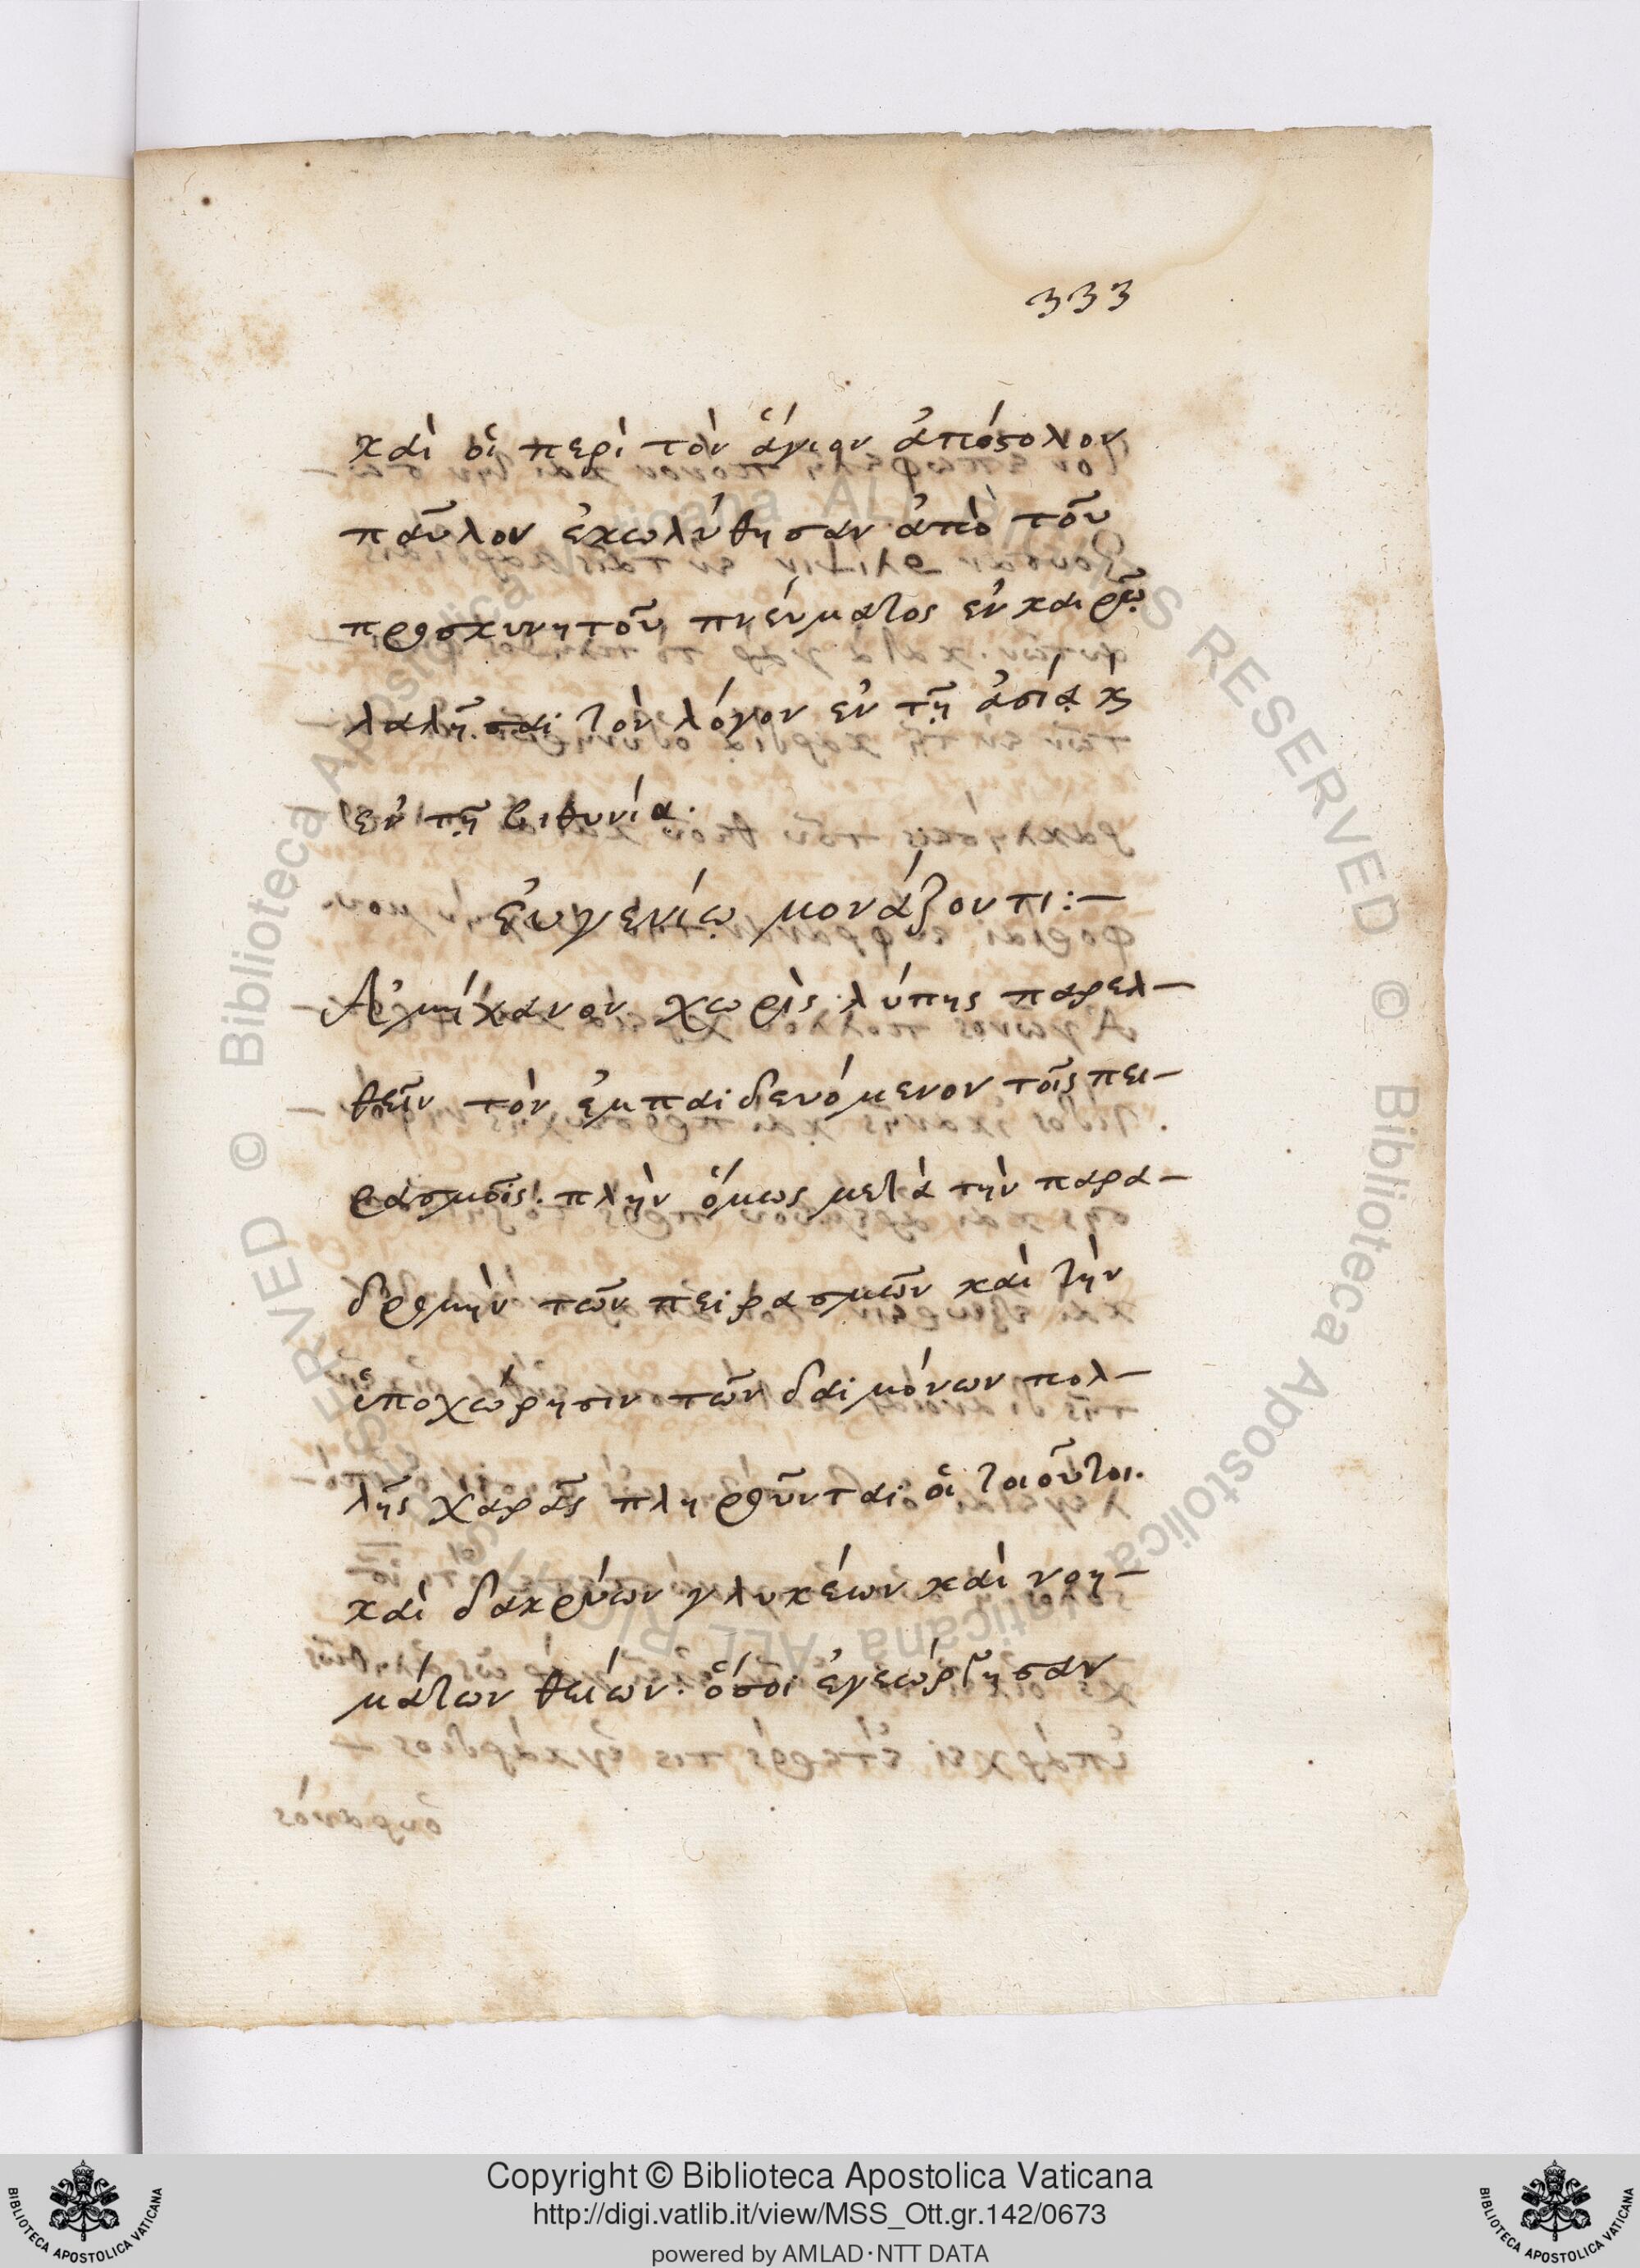 333
καὶ οἱ περὶ τὸν ἅγιον ἀπόστολον
παῦλον ἐκωλύθησαν ἀπὸ τοῦ
προσκυνητοῦ πνεύματος ἐν καιρῷ
λαλῆσαι τὸν λόγον ἐν τῇ ἀσίᾳ κ̀
ἐν τῇ βιθυνία.
ἐυγενίῳ μονάζοντι:—
Ἀμήχανον χωρὶς λύπης παρελ—
θεῖν τὸν ἐμπαιδευόμενον τοῖς πει—
ρασμοῖς. πλὴν ὅμως μετὰ τὴν παρα—
δρομὴν τῶν πειρασμῶν καὶ τὴν
ὑποχώρησιν τῶν δαιμόνων πολ—
λῆς χαρᾶς πληροῦνται οἱ τοιοῦτοι.
καὶ δακρύων γλυκέων καὶ νοη—
μάτων θείων. ὅσοι ἐγεώργησαν
© Biblioteca Apostolica Vaticana ALL RIGHTS RESERVED
© Biblioteca Apostolica Vaticana ALL RIGHTS RESERVED
Copyright © Biblioteca Apostolica Vaticana
http://digi.vatlib.it/view/MSS_Ott.gr.142/0673
powered by AMLAD·NTT DATA
BIBLIOTECA APOSTOLICA VATICANA
BIBLIOTECA APOSTOLICA VATICANA